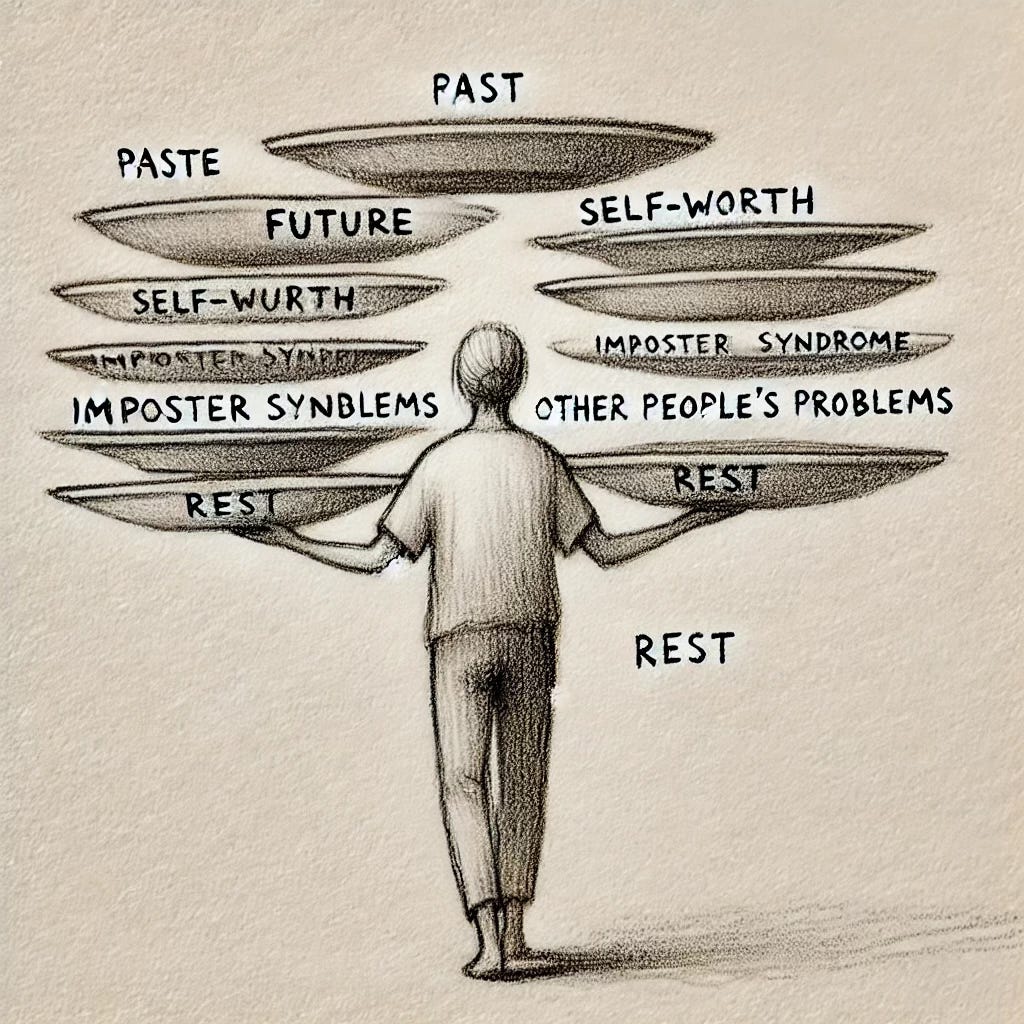 PAST
PASTE
FUTURE
SELF-WORTH
SELF-WURTH
IMPOSTER SYNDROME
IMPOSTER
IMPOSTER SYNBLEMS
OTHER PEOPLE'S PROBLEMS
REST
REST
REST